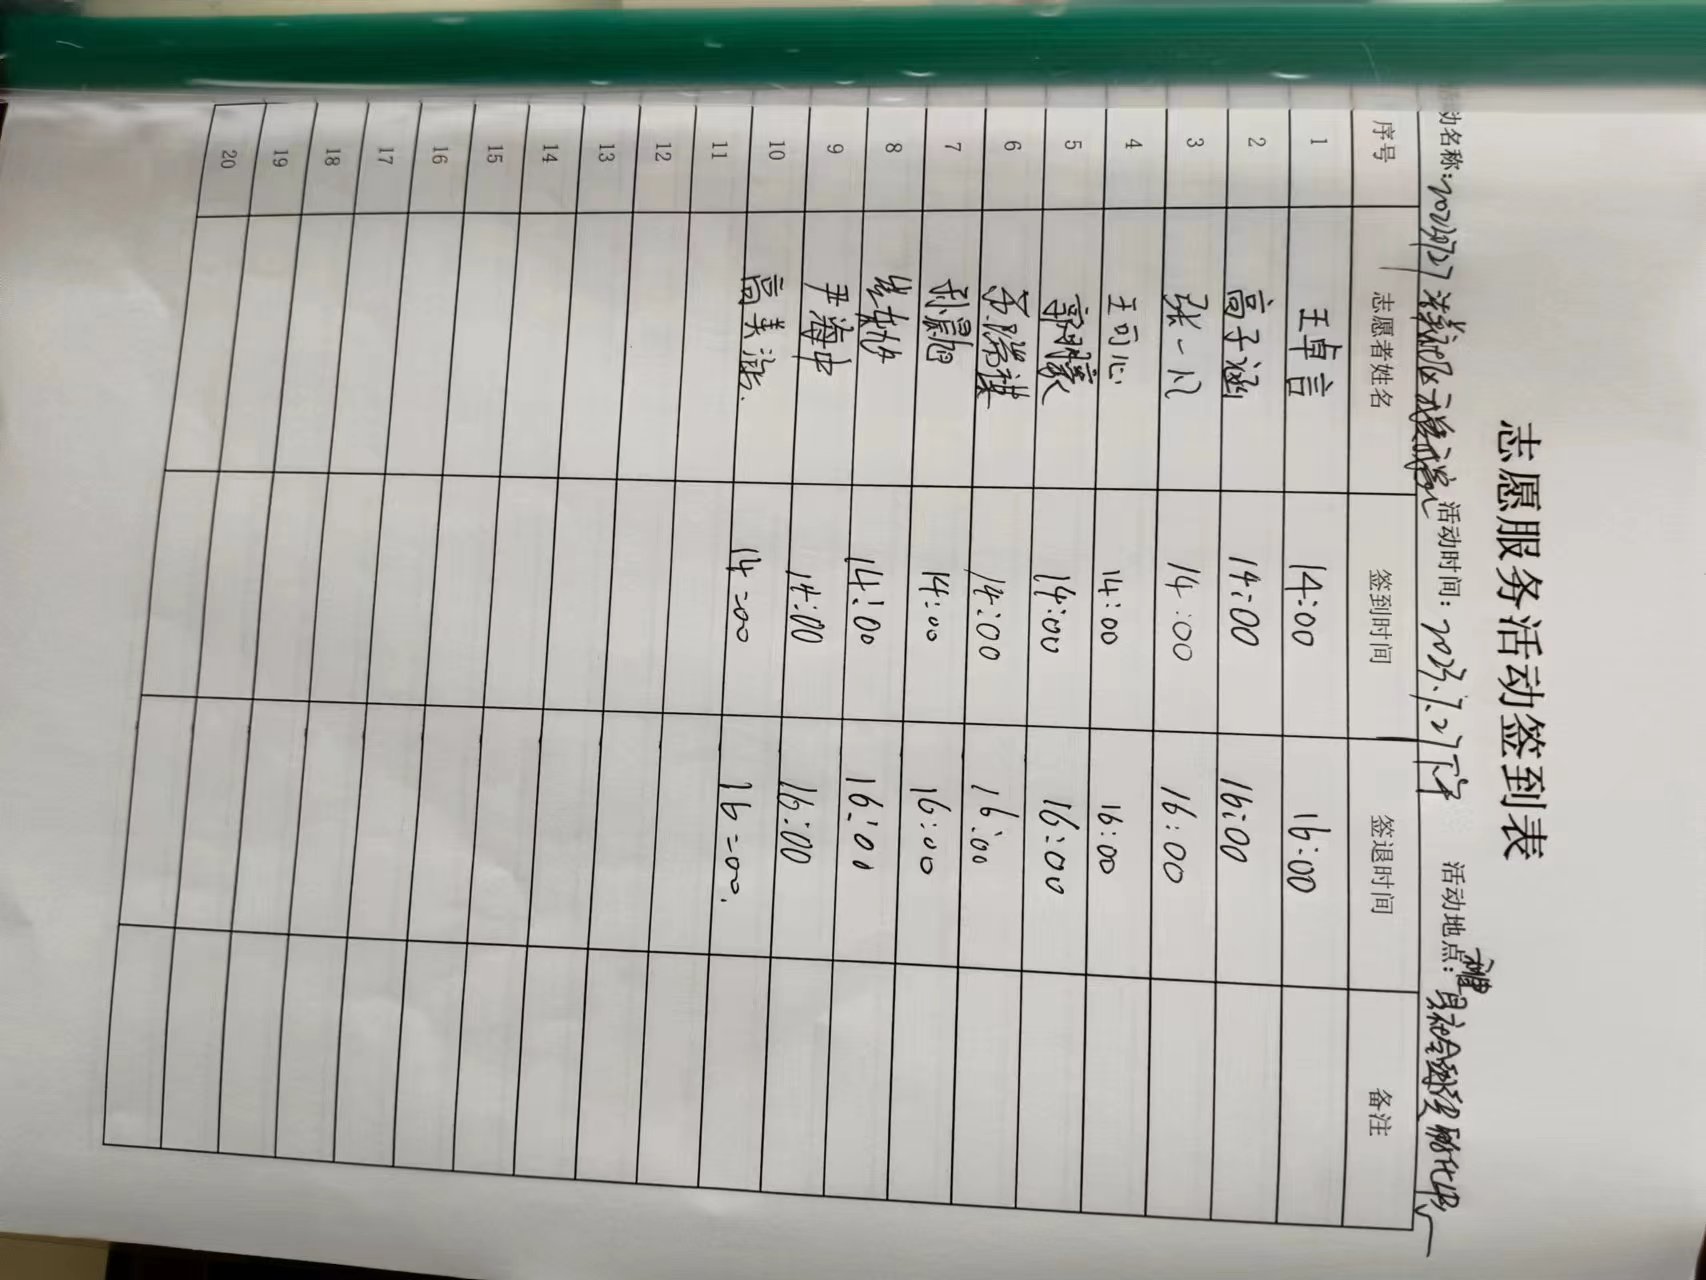 志愿服务活动签到表
动名称: 活动时间: 2023.7.27下午 活动地点:
序号 志愿者姓名 签到时间 签退时间 备注
1 王卓言 14:00 16:00
2 高子涵 14:00 16:00
3 张一凡 14:00 16:00
4 王可心 14:00 16:00
5 14:00 16:00
6 14:00 16:00
7 14:00 16:00
8 14:00 16:00
9 尹海中 14:00 16:00
10 高美 14:00 16:00
11
12
13
14
15
16
17
18
19
20